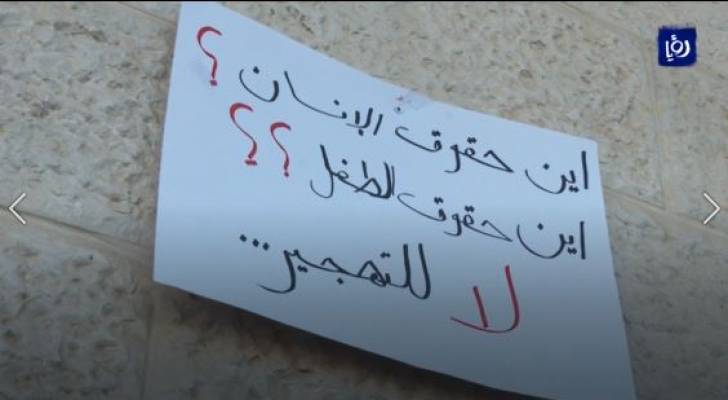 رؤيا
اين حقوق الانسان ؟
اين حقوق الطفل ؟؟
لا للتهجير...